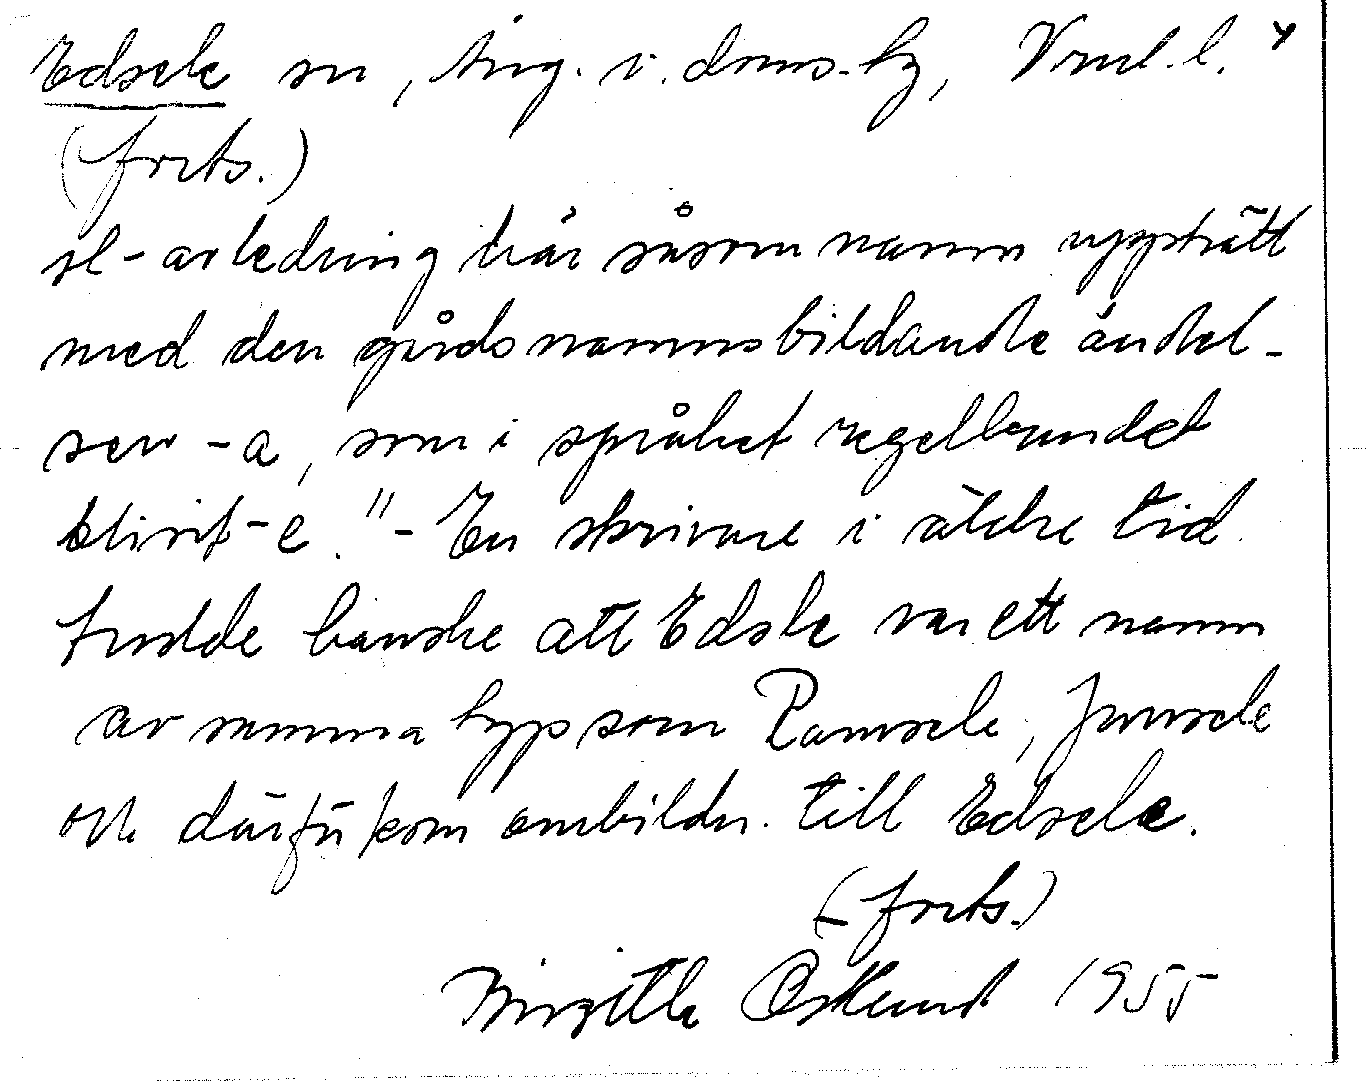 Edsele sn, Ång. v. doms. hg, Vrml. l.
(forts.)
sl-avledning här såsom namn uppträtt
med den gårdsnamnsbildande ändel-
sen -a, som i språket regelbundet
blivit -e." - En skrivare i äldre tid
trodde kanske att Edsle var ett namn
av samma typ som Ramsele, Junsele
och därför kom ombildn. till Edsele.
(forts.)
Birgitta Östlund 1955